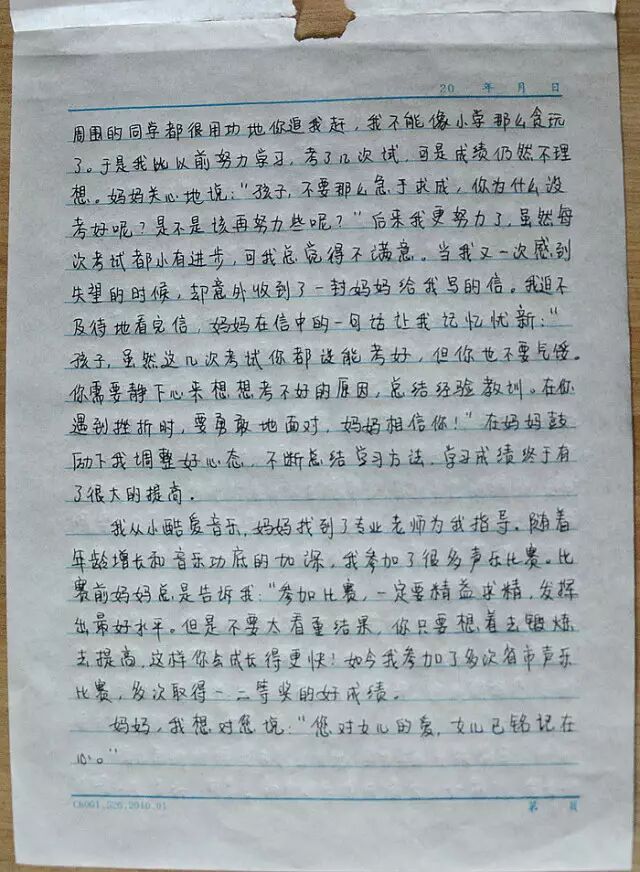 20 年 月 日
周围的同学都很用功地你追我赶，我不能像小学那么贪玩
了。于是我比以前努力学习，考了几次试，可是成绩仍然不理
想。妈妈关心地说：“孩子，不要那么急于求成，你为什么没
考好呢？是不是该再努力些呢？”后来我更努力了，虽然每
次考试都小有进步，可我总觉得不满意。当我又一次感到
失望的时候，却意外收到了一封妈妈给我写的信。我迫不
及待地看完信，妈妈在信中的一句话让我记忆忧新：“
孩子，虽然这几次考试你都没能考好，但你也不要气馁。
你需要静下心来想想考不好的原因，总结经验教训。在你
遇到挫折时，要勇敢地面对，妈妈相信你！”在妈妈鼓
励下我调整好心态，不断总结学习方法，学习成绩终于有
了很大的提高。
我从小酷爱音乐，妈妈找到了专业老师为我指导。随着
年龄增长和音乐功底的加深，我参加了很多声乐比赛。比
赛前妈妈总是告诉我：“参加比赛，一定要精益求精，发挥
出最好水平。但是不要太看重结果，你只要想着去锻炼
去提高，这样你会成长得更快！如今我参加了多次省市声乐
比赛，多次取得一二等奖的好成绩。
妈妈，我想对您说：“您对女儿的爱，女儿已铭记在
心。”
第 页